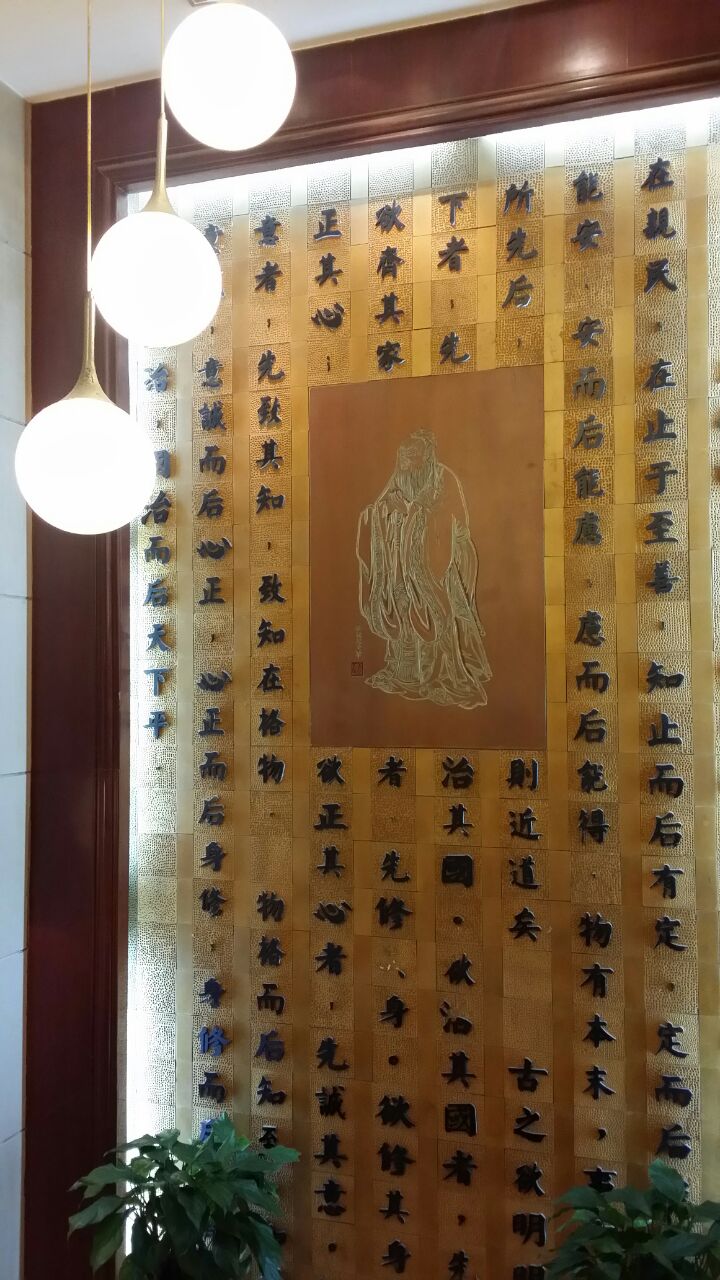 在親民，在止于至善，知止而后有定，定而后
能安，安而后能慮，慮而后能得。物有本末，
所先后，則近道矣 古之欲明明
下者，先治其國。欲治其國者，先
欲齊其家者，先修其身。欲修其身
正其心；欲正其心者，先誠其意。
意者，先致其知，致知在格物。物格而后知至
意誠而后心正，心正而后身修，身修而
治，國治而后天下平。